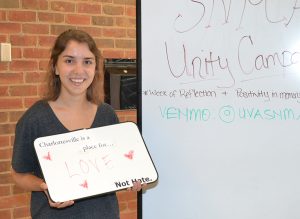 SNMA
Unity Campa
Week of Reflection + Positivity in memor
VENMO @UVASNM
Charlottesville is a
place for...
LOVE
Not Hate.